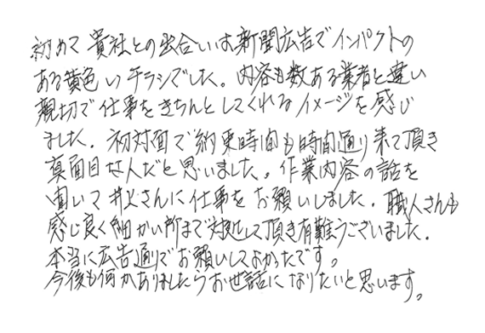 初めて貴社との出合いは新聞広告でインパクトの
ある黄色いチラシでした。内容も数ある業者と違い
親切で仕事をきちんとしてくれるイメージを感じ
ました。初対面で約束時間も時間通り来て頂き
真面目な人だと思いました。作業内容の話を
聞いて井上さんに仕事をお願いしました。職人さんも
感じ良く細かい所まで対処して頂き有難うございました。
本当に広告通りでお願いしてよかったです。
今後も何かありましたらお世話になりたいと思います。